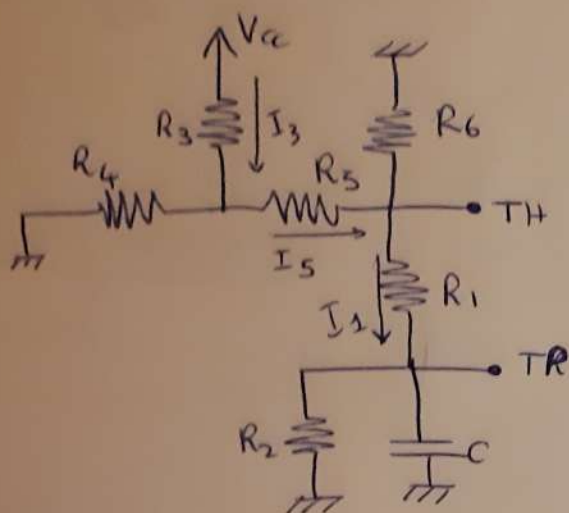 Vcc
R3
I3
R6
R4
R5
TH
I5
R1
I1
TR
R2
C